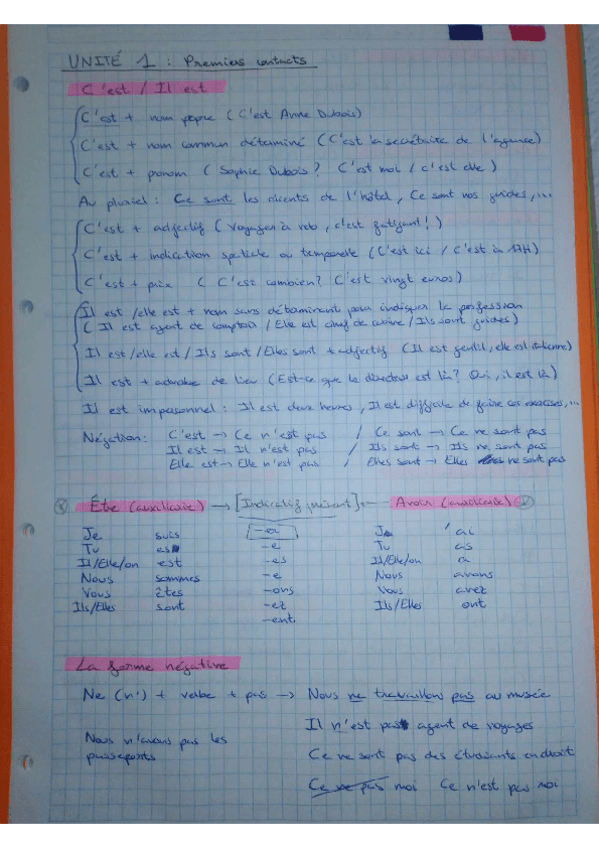 UNITÉ 1 : Premiers contacts
C'est / Il est
C'est + nom propre (C'est Anne Dubois)
C'est + nom commun déterminé (C'est la secrétaire de l'agence)
C'est + pronom (Sophie Dubois? C'est moi / c'est elle)
Au pluriel : Ce sont les clients de l'hôtel, Ce sont nos guides,...
C'est + adjectif (Voyager à vélo, c'est fatigant!)
C'est + indication spatiale ou temporelle (C'est ici / C'est à 17H)
C'est + prix ( C'est combien? C'est vingt euros)
Il est /elle est + nom sans déterminant pour indiquer la profession
( Il est agent de comptoir / Elle est chef de cuisine / Ils sont guides)
Il est / elle est / Ils sont / Elles sont + adjectif (Il est gentil, elle est)
Il est + adverbe de lieu (Est-ce que le directeur est là? Oui, il est là)
Il est impersonnel : Il est deux heures, Il est difficile de faire ces exercises,...
Négation: C'est → Ce n'est pas / Ce sont → Ce ne sont pas
Il est → Il n'est pas / Ils sont → Ils ne sont pas
Elle est → Elle n'est pas / Elles sont → Elles ne sont pas
Être (auxiliaire) → [Indicatif présent] ← Avoir (auxiliaire)
Je suis Je 'ai
Tu es -e Tu as
Il/Elle/on est -es Il/Elle/on a
Nous sommes -e Nous avons
Vous êtes -ons Vous avez
Ils/Elles sont -ez Ils/Elles ont
-ent
La forme négative
Ne (n') + verbe + pas → Nous ne travaillons pas au musée
Il n'est pas agent de voyages
Nous n'avons pas les
passeports
Ce ne sont pas des étudiants en droit
Ce ne pas moi Ce n'est pas moi